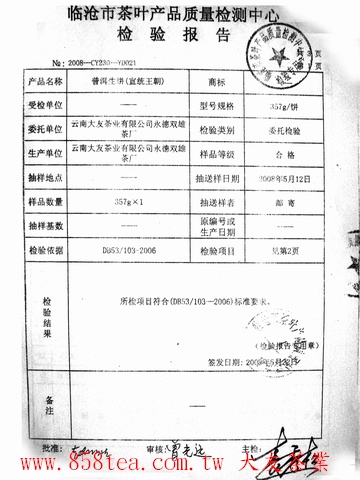 临沧市茶叶产品质量检测中心
检 验 报 告
№:2008—CY230—Y0021
产品名称 普洱生饼(宣统王朝) 商标 ——
受检单位 —— 型号规格 357g/饼
委托单位 云南大友茶业有限公司永德双雄茶厂 检验类别 委托检验
生产单位 云南大友茶业有限公司永德双雄茶厂 样品等级 合格
抽样地点 —— 抽送样日期 2008年5月12日
样品数量 357g×1 抽送样者 邮寄
抽样基数 —— 原编号或生产日期 ——
检验依据 DB53/103-2006 检验项目 见第2页
检验结果
所检项目符合(DB53/103—2006)标准要求。
(检验报告专用章)
签发日期:2008年5月22日
备注 ——
批准: 审核: 主检:
www.858tea.com.tw 大友茶業